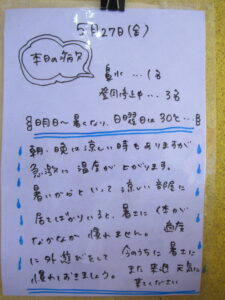 5月27日(金)
本日の病欠
鼻水…1名
登園停止中…3名
明日〜暑くなり、日曜日は30℃…
朝・晩は涼しい時もありますが
急激に温度が上がります。
暑いからといって涼しい部屋に
居てばかりいると、暑さに体が
なかなか慣れません。適度
に外遊びをして今のうちに暑さに
慣れておきましょう。また来週元気に
来てください